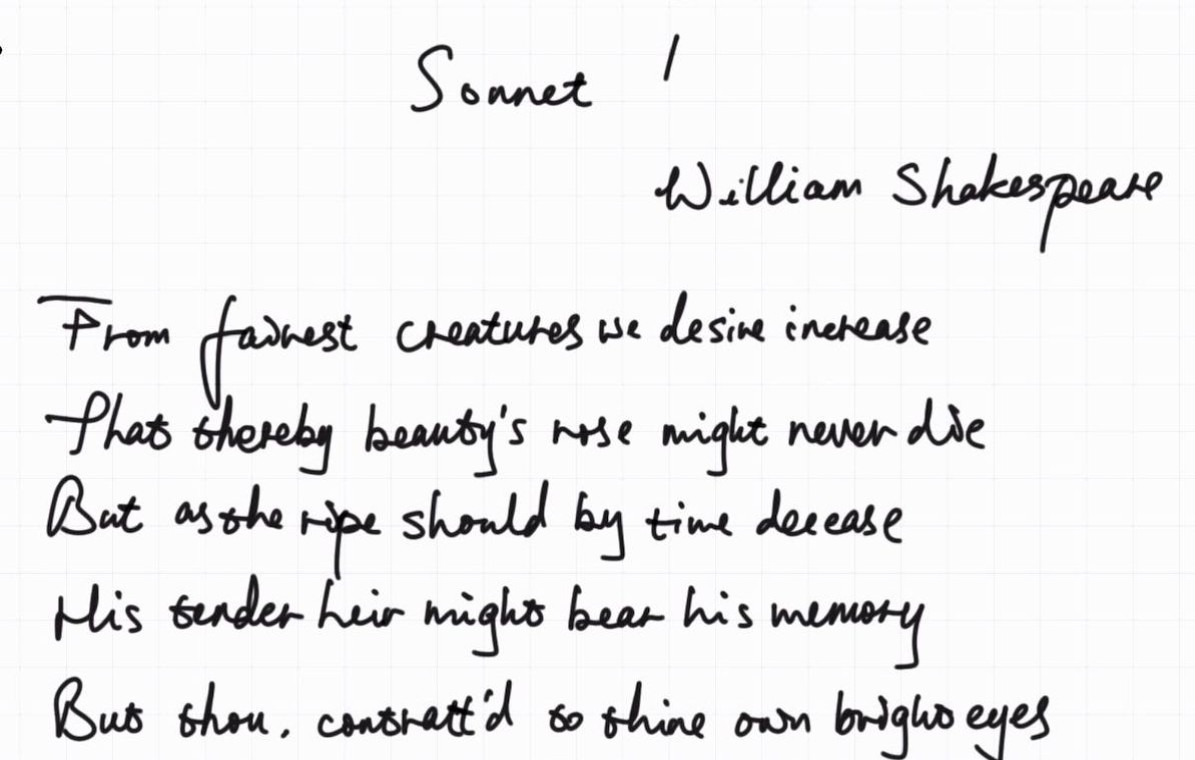 Sonnet 1
William Shakespeare
From fairest creatures we desire increase
That thereby beauty's rose might never die
But as the ripe should by time decease
His tender heir might bear his memory
But thou, contratt'd to thine own bright eyes